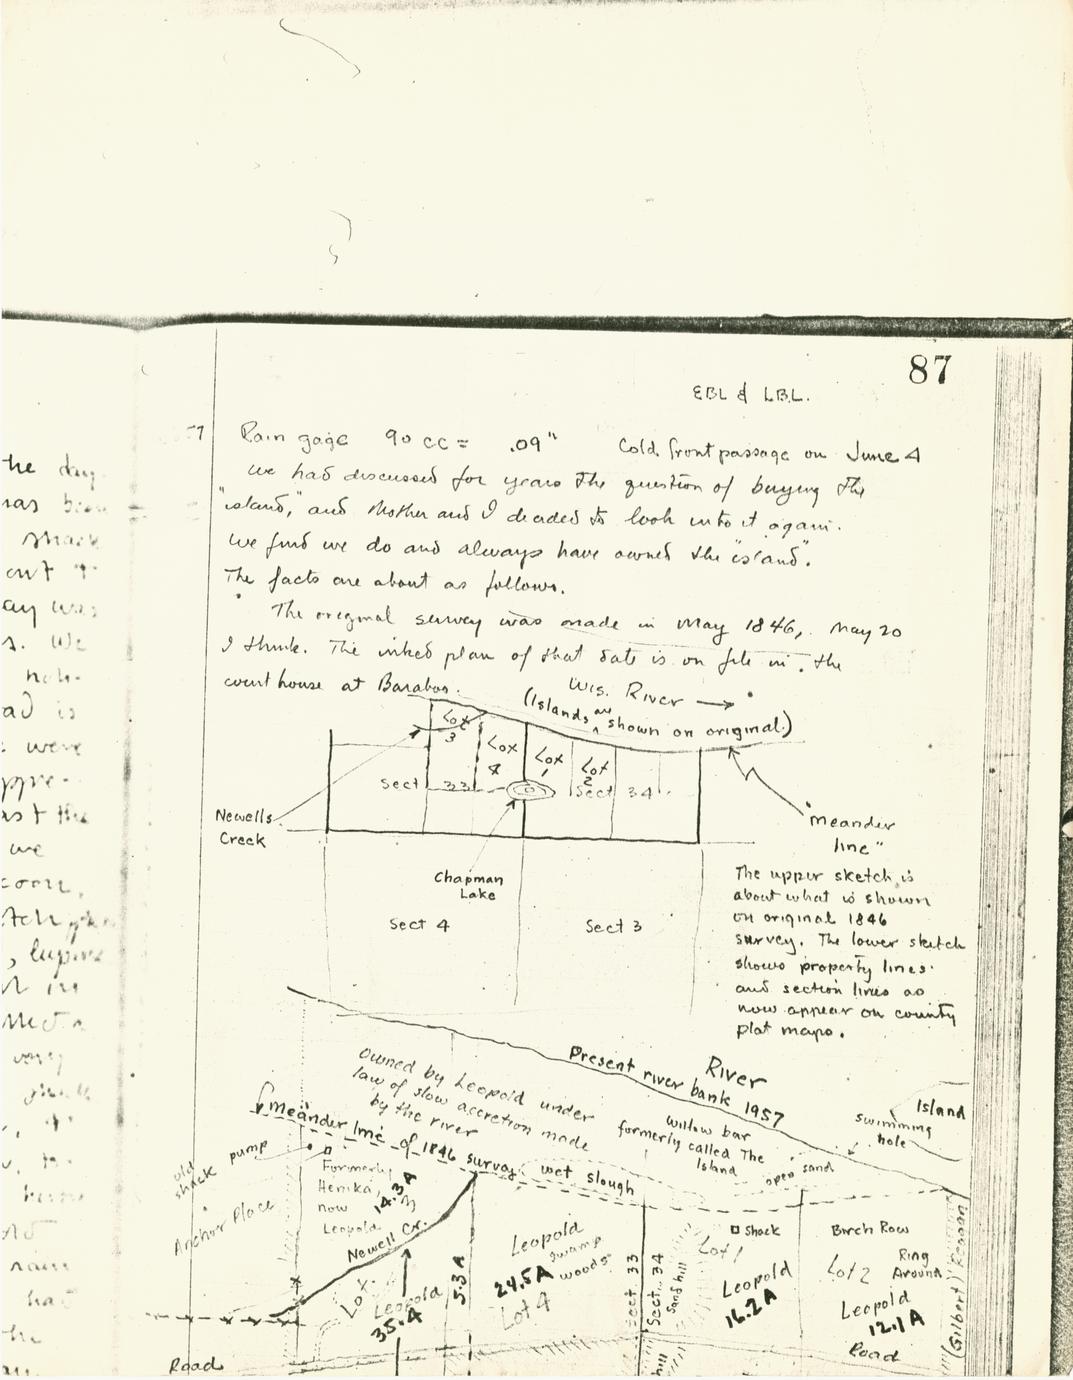 87
EBL & LBL.
Rain gage 90 cc = .09" Cold front passage on June 4
We had discussed for years the question of buying the
"island," and Mother and I decided to look into it again.
We find we do and always have owned the "island".
The facts are about as follows.
The original survey was made in May 1846, May 20
I think. The inked plan of that date is on file in the
court house at Baraboo.
Wis. River →
(Islands are shown on original.)
Lot 3
Lot 4
Lot 1
Lot 2
Sect 33
Sect 34
Newells Creek
"Meander line"
Chapman Lake
Sect 4
Sect 3
The upper sketch is
about what is shown
on original 1846
survey. The lower sketch
shows property lines
and section lines as
now appear on county
plat maps.
River
Present river bank 1957
Owned by Leopold under
law of slow accretion made
by the river
Meander line of 1846 survey
willow bar
formerly called The
Island
Island
swimming
hole
open sand
wet slough
old
shack pump
Formerly
Henika
now
Leopold
14.3A
Anchor Place
Newell Cr.
Lot
3
Leopold
35.4
5.3A
Leopold
swamp
woods
24.5A
Lot 4
Sect 33
Sect. 34
Sand hill
Shack
Lot 1
Leopold
16.2A
Birch Row
Ring
Around
Lot 2
Leopold
12.1A
(Gilbert) Reagan
Road
Road
hill
the day
has been
shack
out
day was
s. We
ad is
were
appre-
ast the
we
coon,
lupine
in
very
rain
had
the